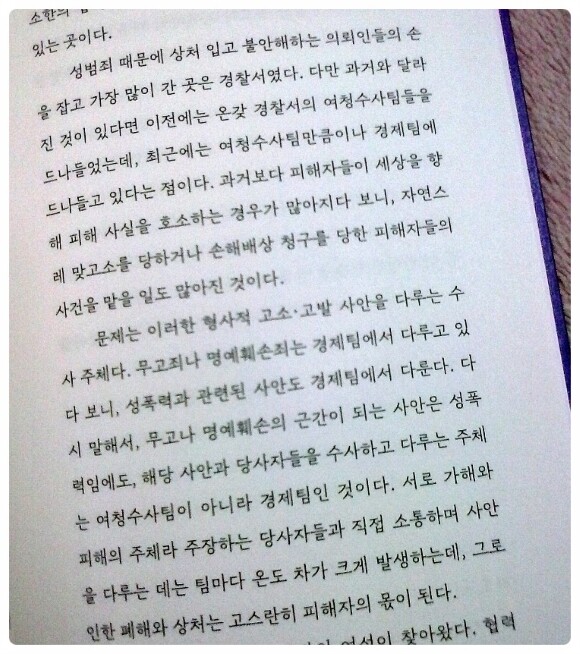 소한의
있는 곳이다.
성범죄 때문에 상처 입고 불안해하는 의뢰인들의 손
을 잡고 가장 많이 간 곳은 경찰서였다. 다만 과거와 달라
진 것이 있다면 이전에는 온갖 경찰서의 여청수사팀들을
드나들었는데, 최근에는 여청수사팀만큼이나 경제팀에
드나들고 있다는 점이다. 과거보다 피해자들이 세상을 향
해 피해 사실을 호소하는 경우가 많아지다 보니, 자연스
레 맞고소를 당하거나 손해배상 청구를 당한 피해자들의
사건을 맡을 일도 많아진 것이다.
문제는 이러한 형사적 고소·고발 사안을 다루는 수
사 주체다. 무고죄나 명예훼손죄는 경제팀에서 다루고 있
다 보니, 성폭력과 관련된 사안도 경제팀에서 다룬다. 다
시 말해서, 무고나 명예훼손의 근간이 되는 사안은 성폭
력임에도, 해당 사안과 당사자들을 수사하고 다루는 주체
는 여청수사팀이 아니라 경제팀인 것이다. 서로 가해와
피해의 주체라 주장하는 당사자들과 직접 소통하며 사안
을 다루는 데는 팀마다 온도 차가 크게 발생하는데, 그로
인한 폐해와 상처는 고스란히 피해자의 몫이 된다.
여성이 찾아왔다. 협력